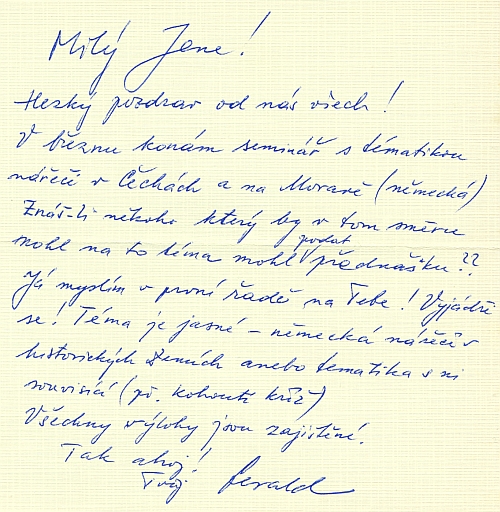 Milý Jene!
Hezký pozdrav od nás všech!
V březnu konám seminář s tématikou
nářečí v Čechách a na Moravě (německá)
Znáš-li někoho který by v tom směru
mohl na to téma mohl podat přednášku??
Já myslím v první řadě na Tebe! Vyjádři
se! Téma je jasné – německá nářečí v
historických zemích anebo tematika s ní
souvisící (př. Kohoutí kříž)
Všechny výlohy jsou zajištěné.
Tak ahoj!
Tvůj Gerald